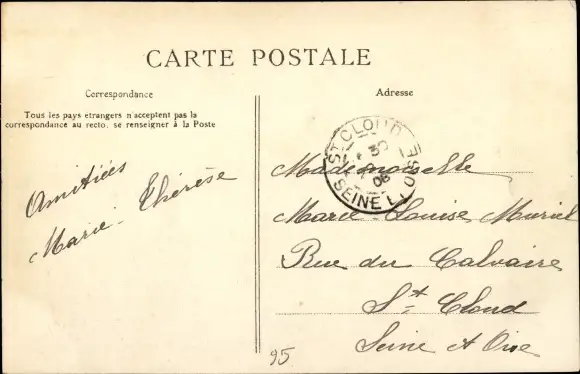 CARTE POSTALE
Correspondance
Tous les pays etrangers n'acceptent pas la
correspondance au recto, se renseigner à la Poste
Amitiées
Marie-Thérèse
Adresse
ST CLOUD
30
08
SEINE ET OISE
Mademoiselle
Marie-Louise Muriel
Rue du Calvaire
St Cloud
Seine et Oise
95